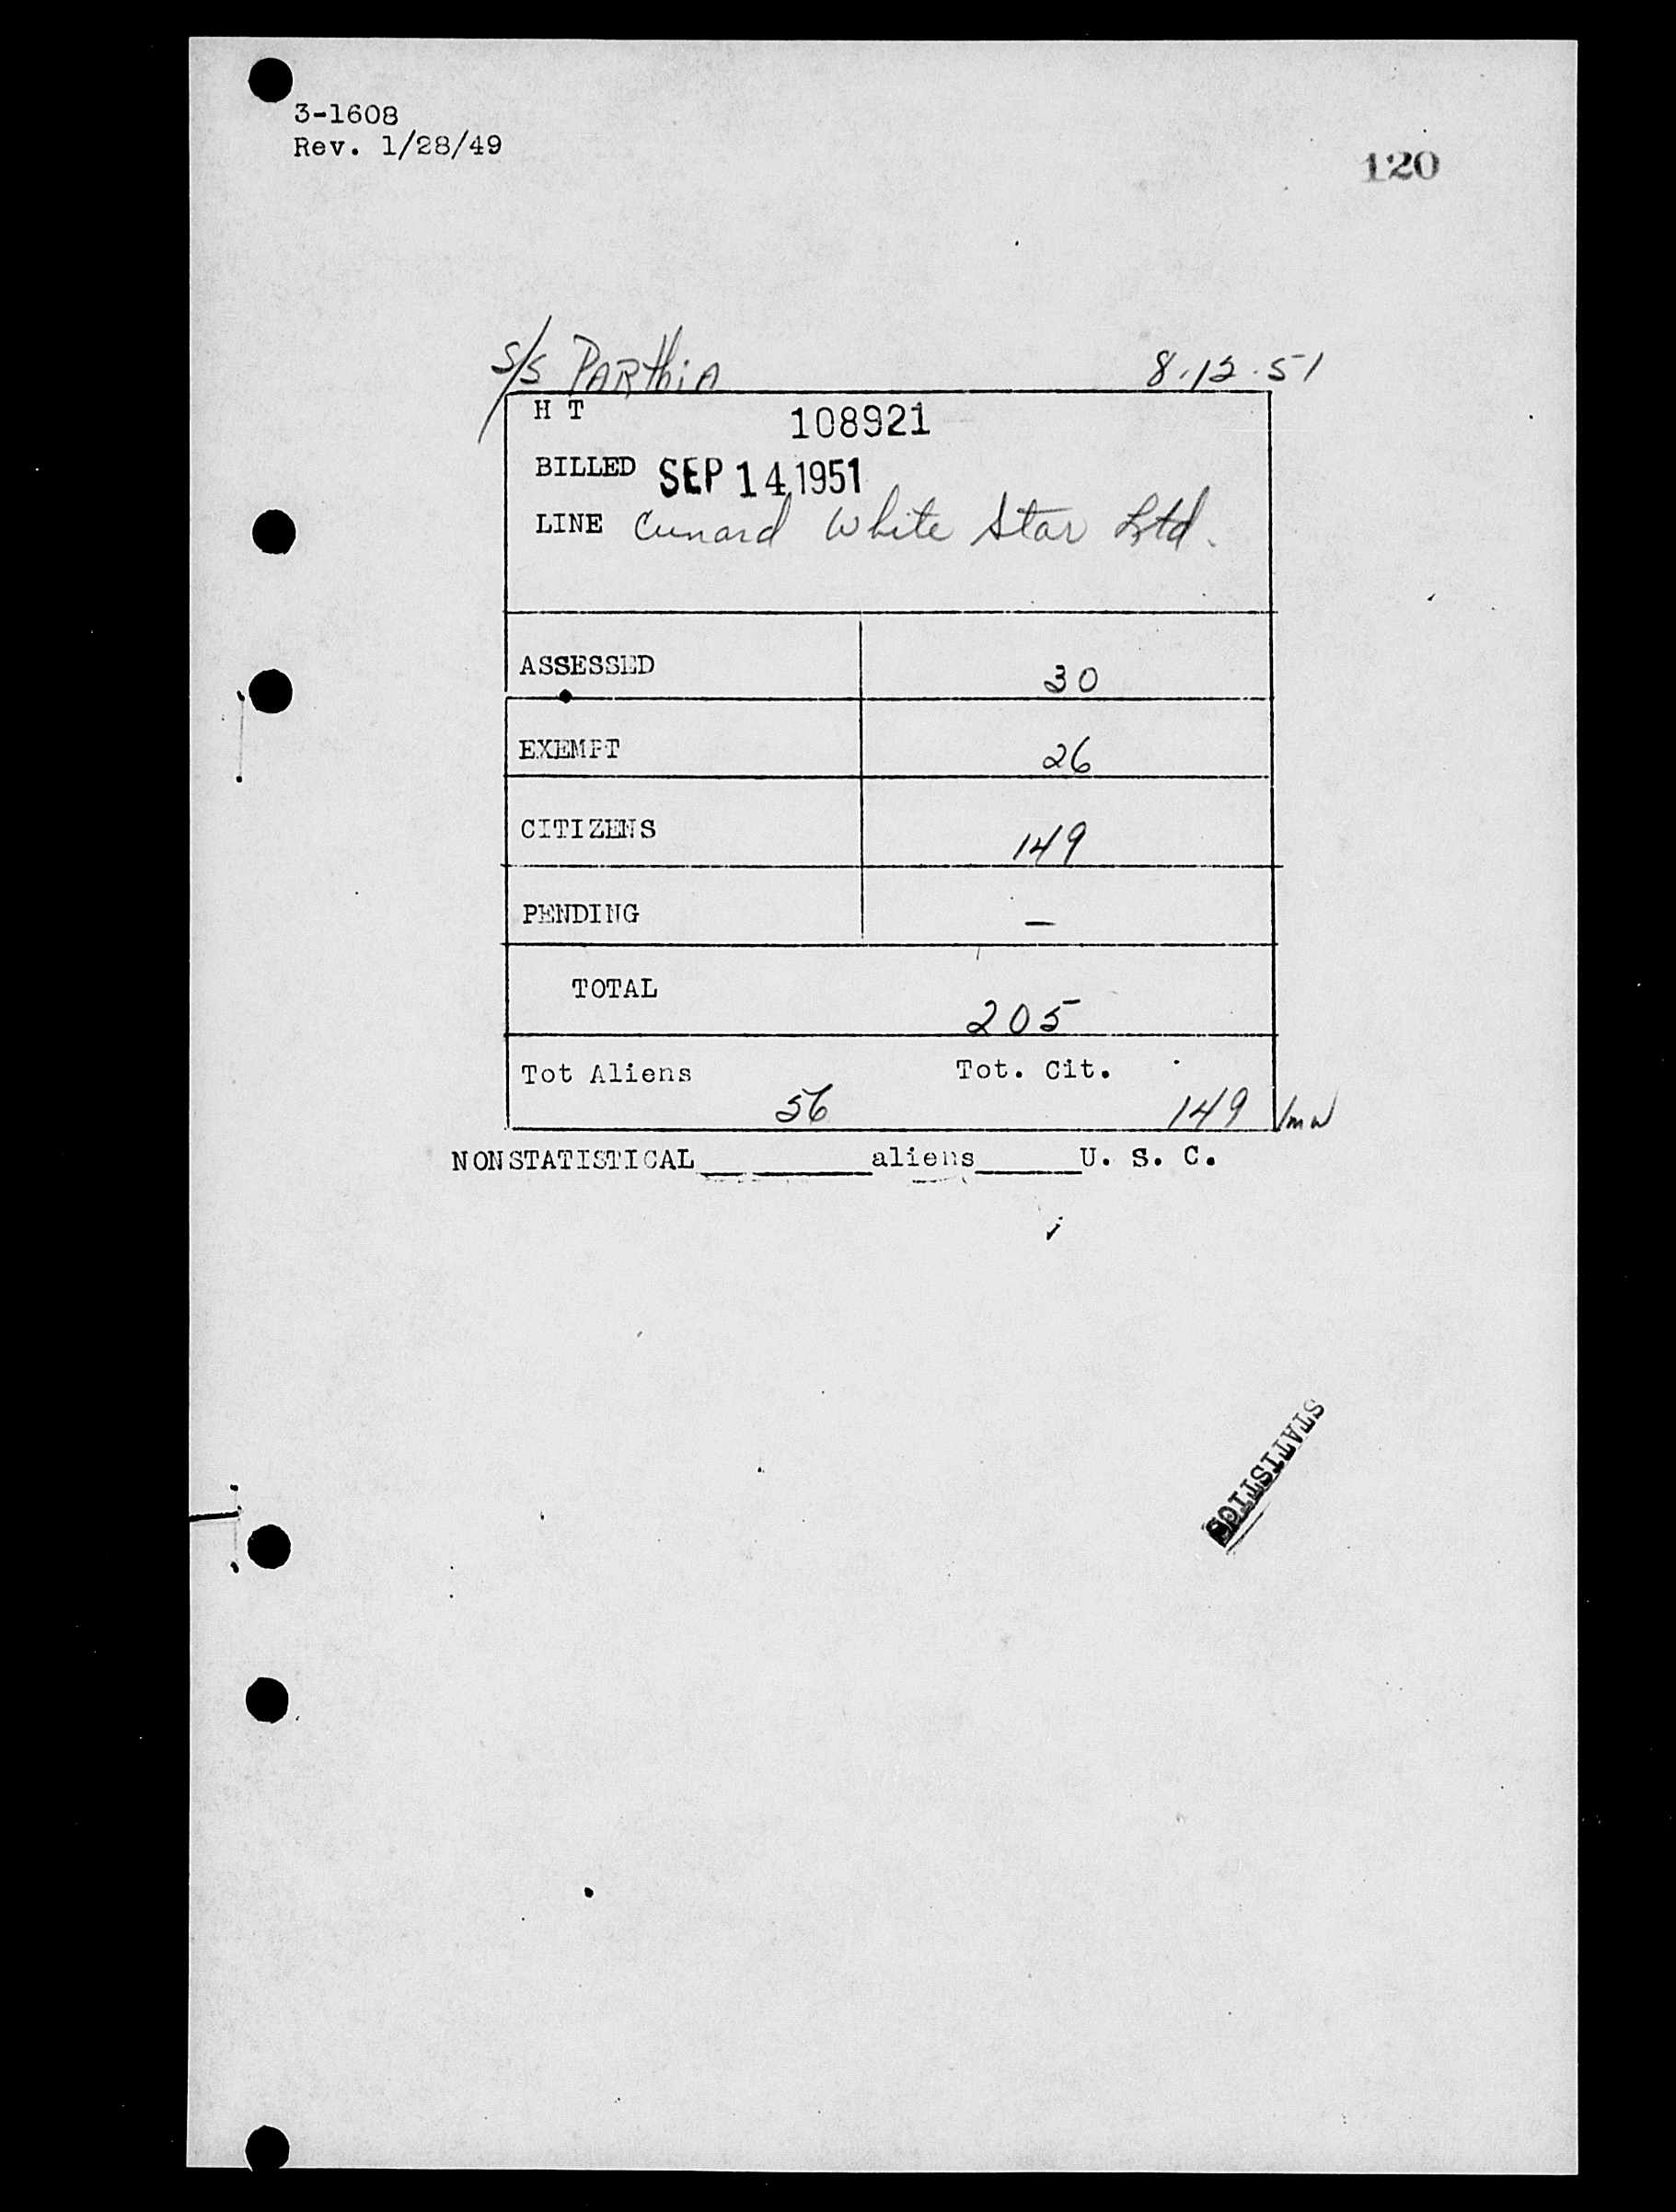 3-1608
Rev. 1/28/49
120
S/S PARthiA 8.12.51
H T 108921
BILLED SEP 14 1951
LINE Cunard White Star Ltd.
ASSESSED 30
EXEMPT 26
CITIZENS 149
PENDING —
TOTAL 205
Tot Aliens 56 Tot. Cit. 149
NONSTATISTICAL__________aliens______U. S. C.
STATISTICS